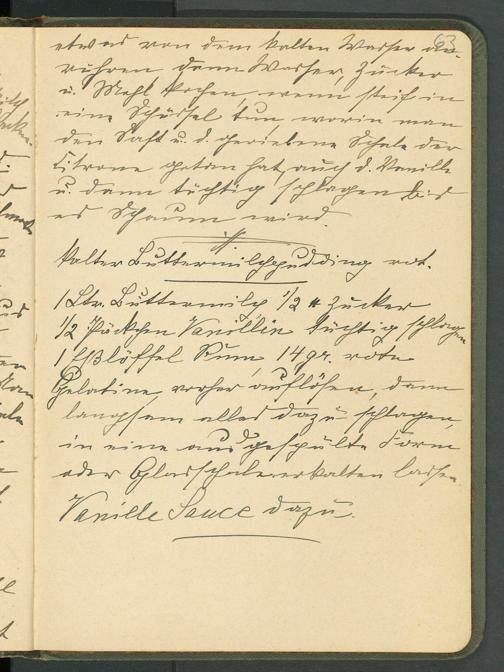 63
etwas von dem kalten Wasser an-
rühren dann Wasser, Zucker
u. Mehl kochen, wenn steif in
eine Schüssel tun worin man
den Saft u. d. geriebene Schale der
Citrone getan hat, auch d. Vanille
u. dann tüchtig schlagen bis
es Schaum wird.
kalter Buttermilchpudding rot.
1 Ltr. Buttermilch 1/2 Zucker
1/2 Päckchen Vanillin tüchtig schlagen
1 Eßlöffel Rum, 14 gr. rote
Gelatine, vorher auflösen, dann
langsam alles dazu schlagen,
in eine ausgespülte Form
oder Glasschale erkalten lassen.
Vanille Sauce dazu.